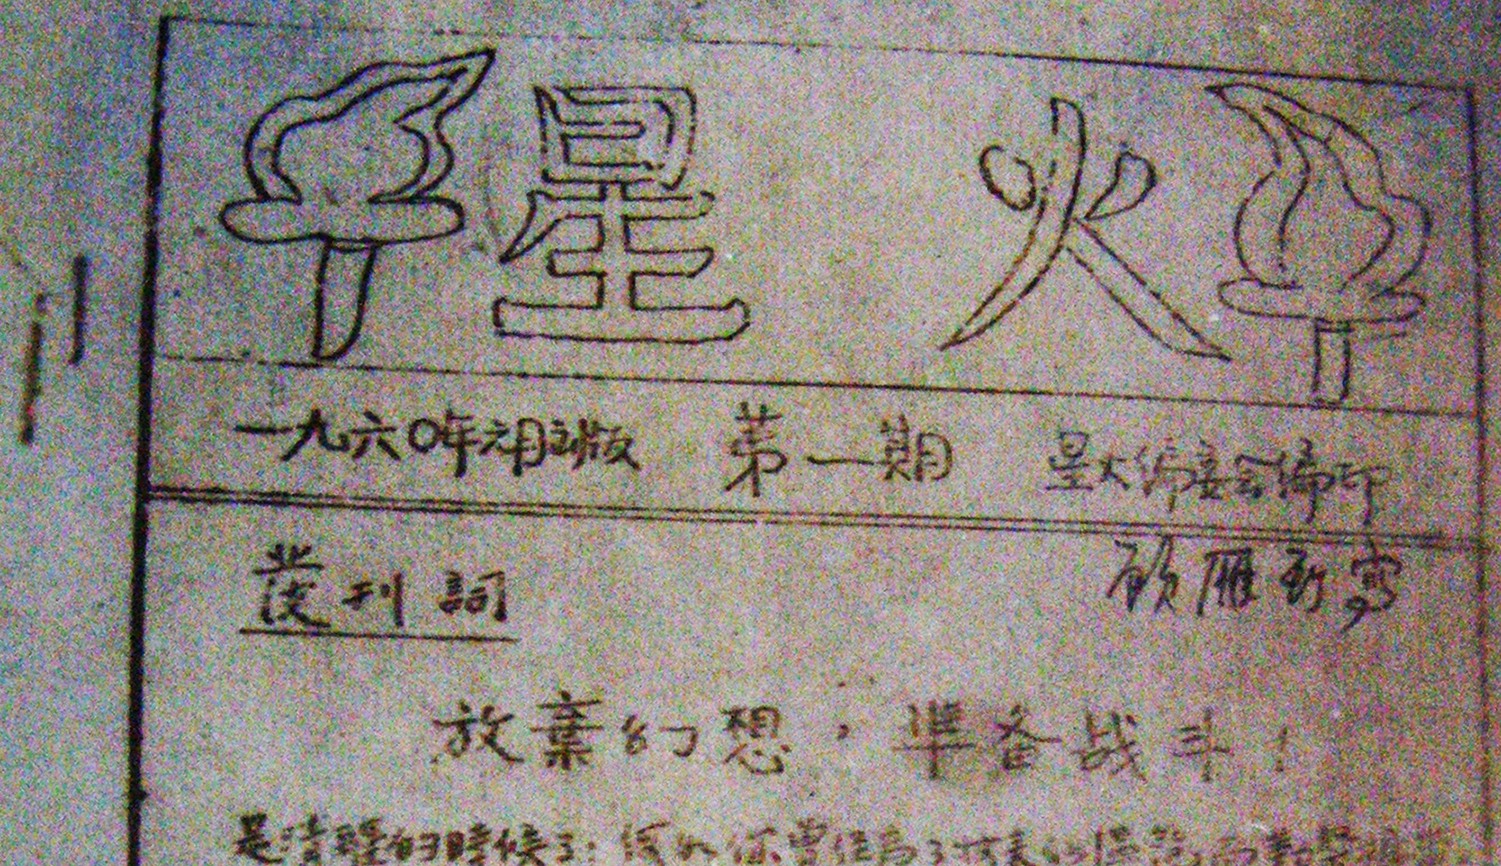 星 火
一九六〇年元月出版 第一期 星火编委会编印
發刊詞 顾雁
放棄幻想,準备战斗!
是清醒的時候了